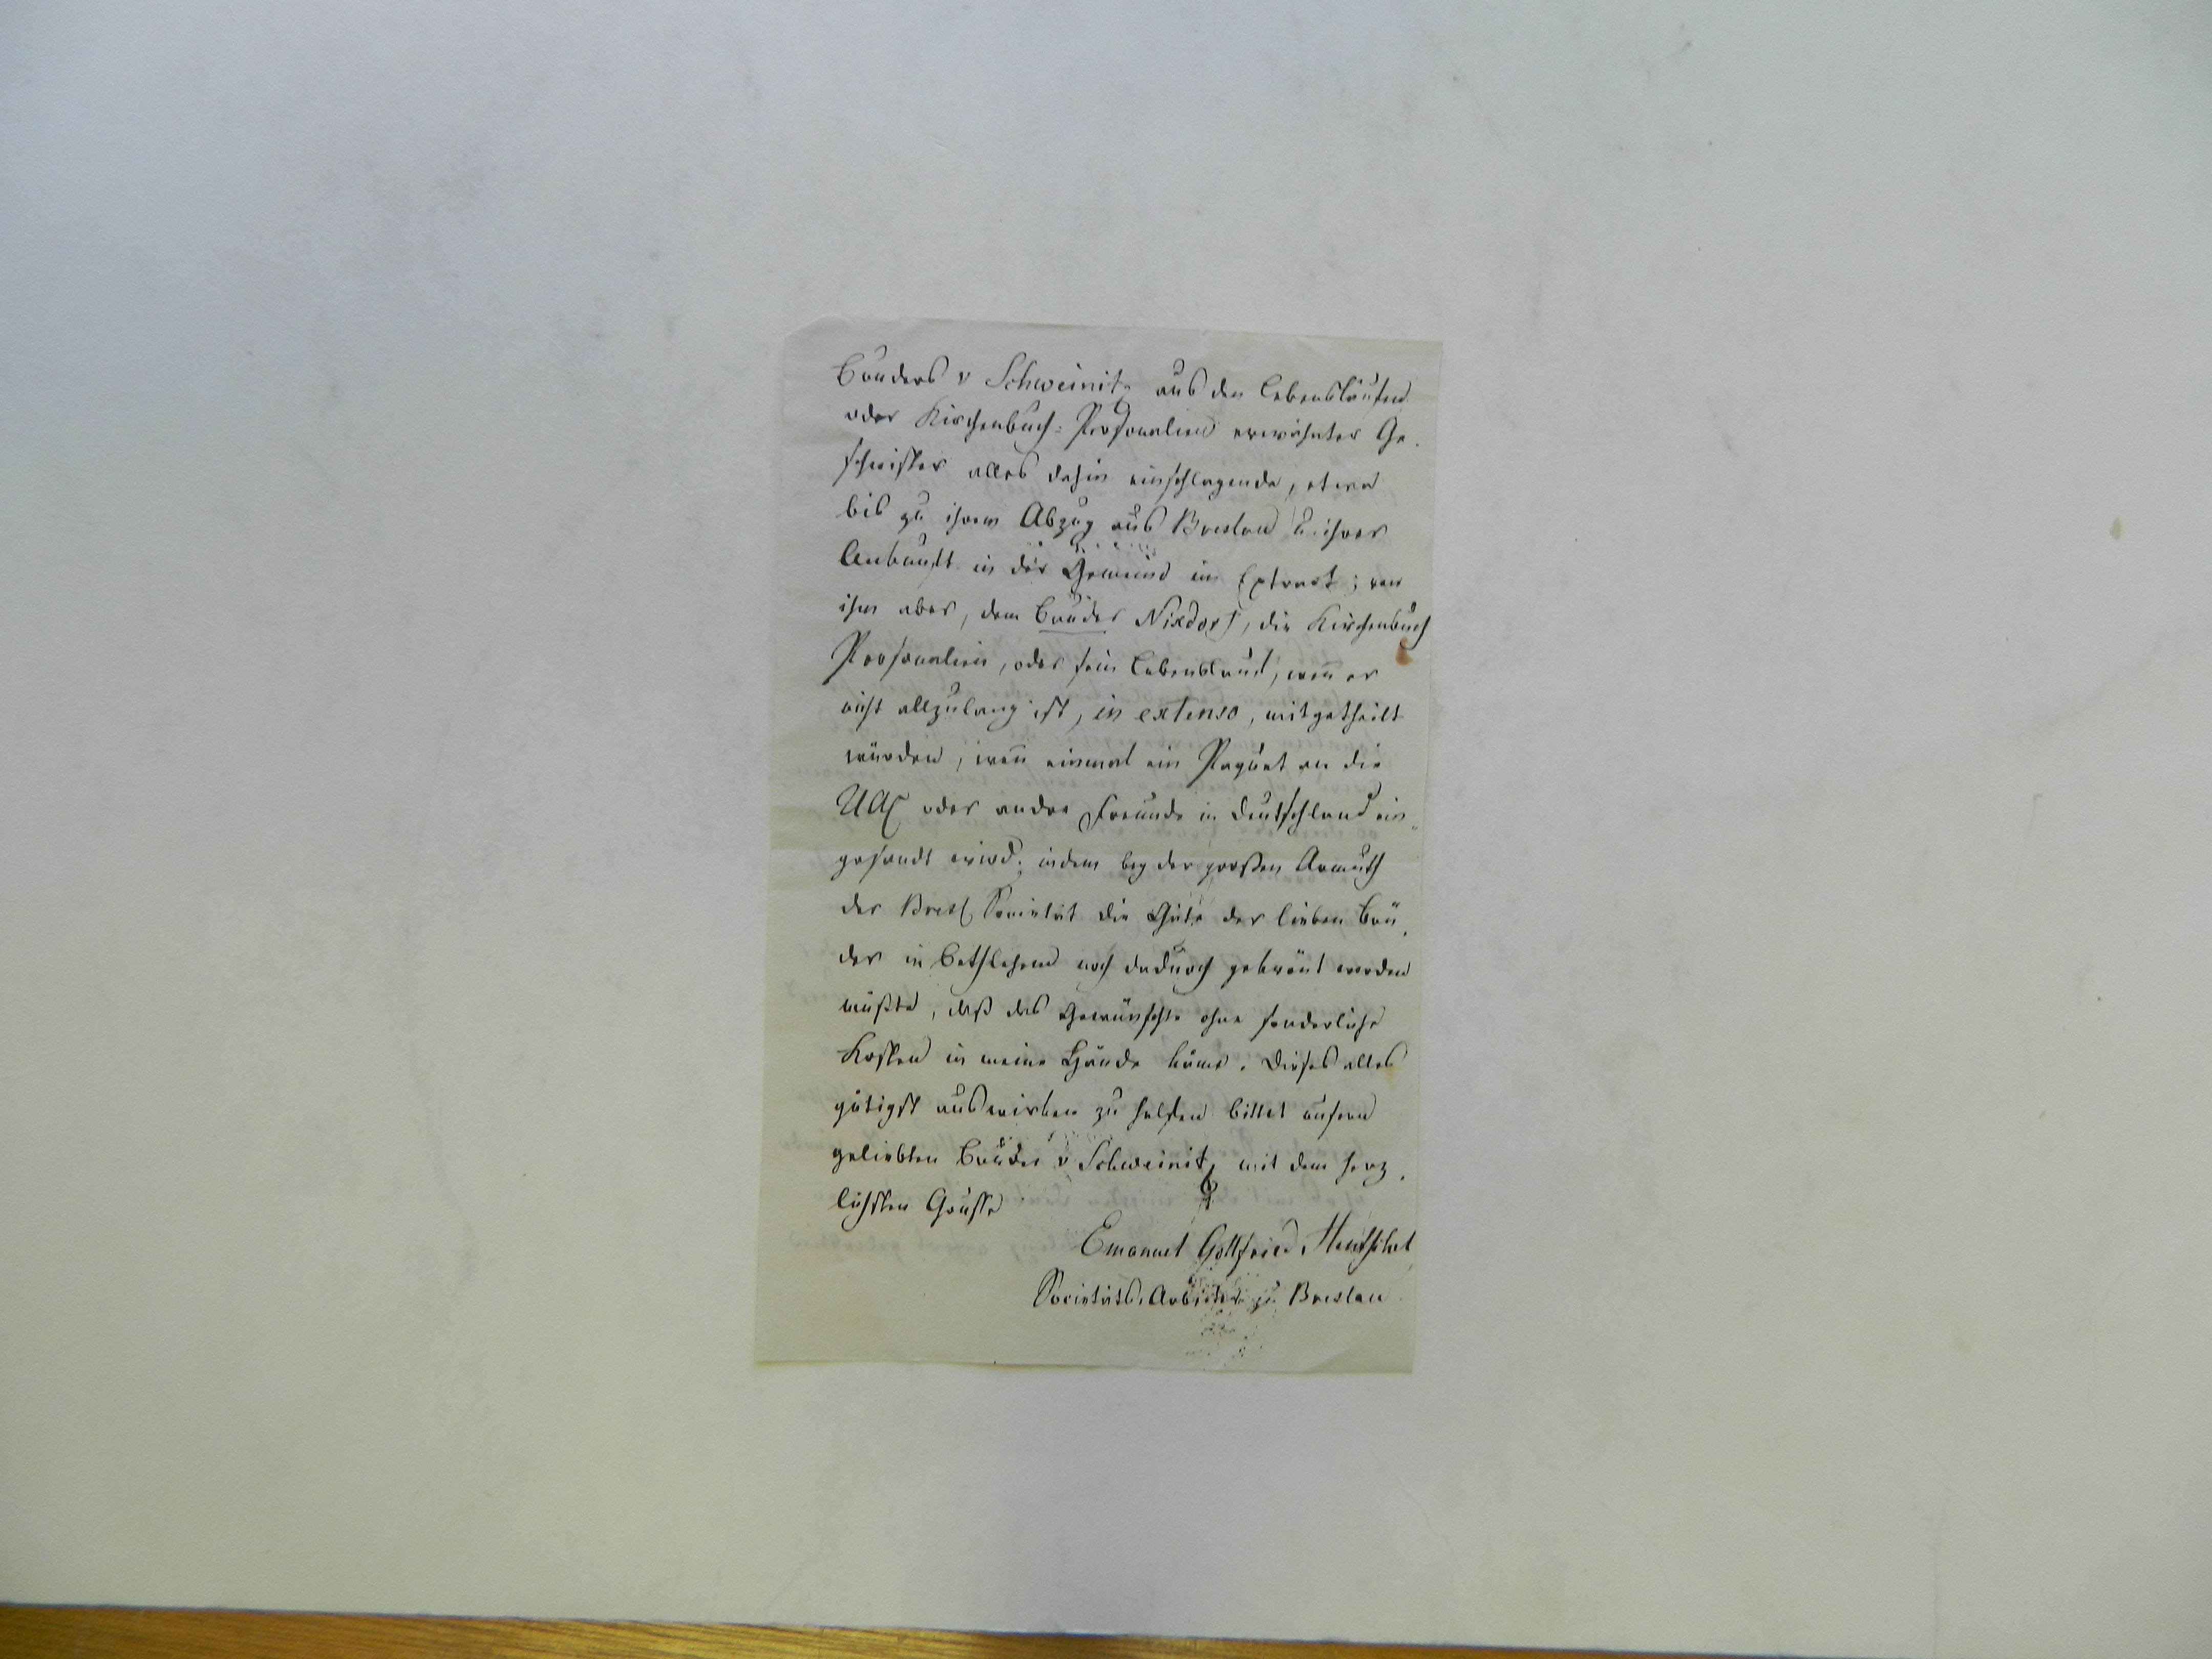 Bruders v Schweinitz aus den Lebensläufen
oder Kirchenbuch-Personalien erwähnter Ge-
schwister alles dahin einschlagende, etwa
bis zu ihrem Abzug aus Breslau u. ihrer
Ankunft in der Gemeine im Extract; von
ihm aber, dem Bruder Nixdorf, die Kirchenbuch
Personalien, oder sein Lebenslauf, wen̄ er
nicht allzulang ist, in extenso, mitgetheilt
würden, wen̄ einmal ein Paquet an die
UAC oder andre Freunde in Deutschland ein-
gesandt wird; indem bey der großen Armuth
der Bresl Societät die Güte der lieben Brü-
der in Bethlehem noch dadurch gekrönt werden
müßte, daß das Gewünschte ohne sonderliche
Kosten in meine Hände käme. Dieses alles
gütigst auswirken zu helfen bittet unsern
geliebten Bruder v Schweinitz mit dem herz-
lichsten Grusse
Emanuel Gottfried Hentschel
Societäts-Arbeiter zu Breslau